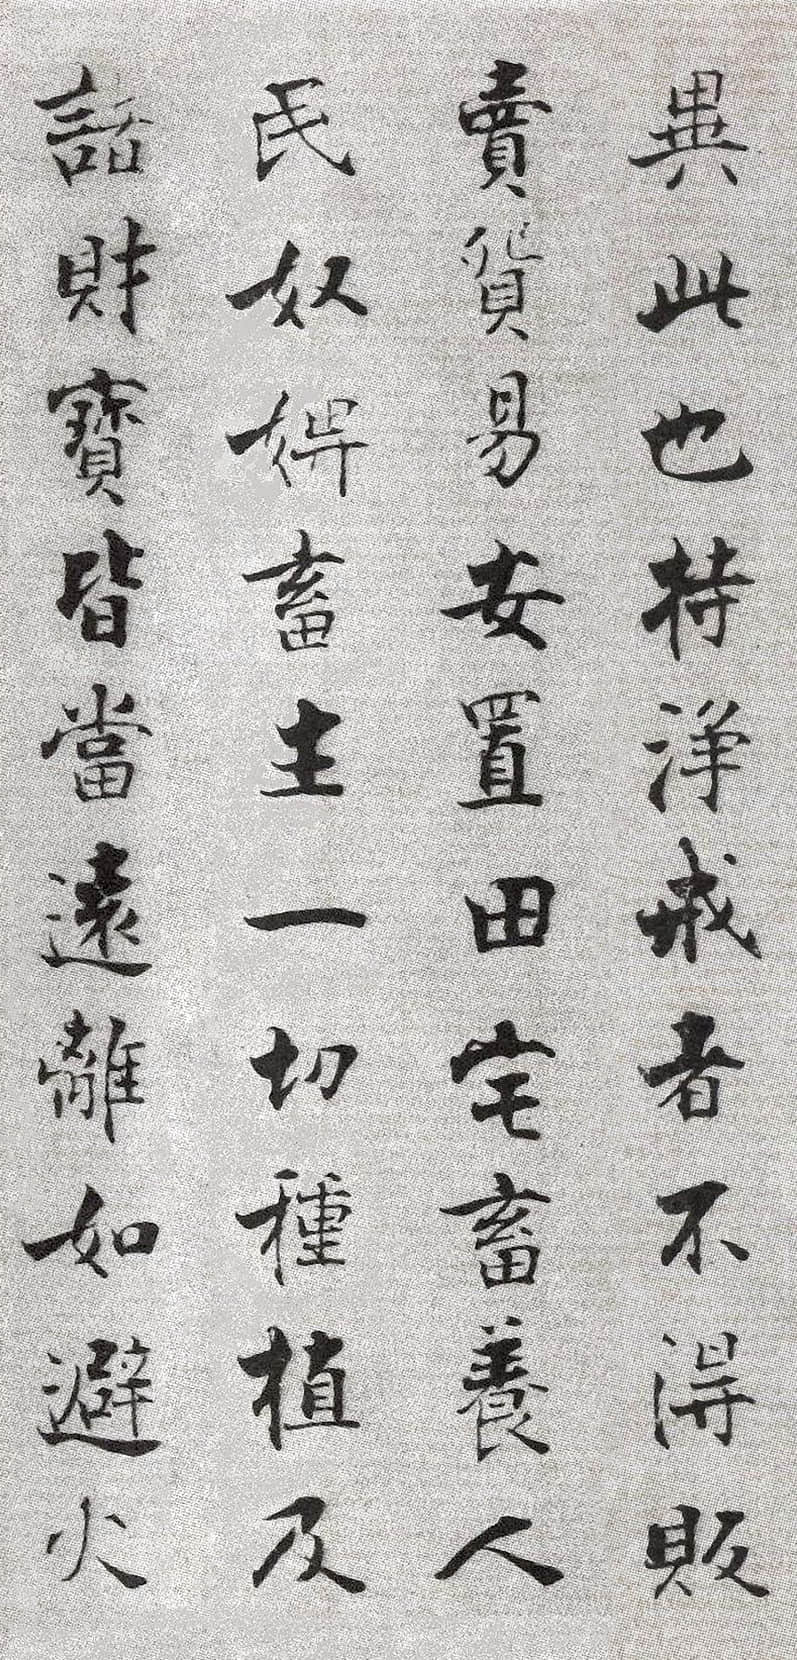 異此也持淨戒者不得販
賣貨易安置田宅畜養人
民奴婢畜生一切種植及
諸財寶皆當遠離如避火